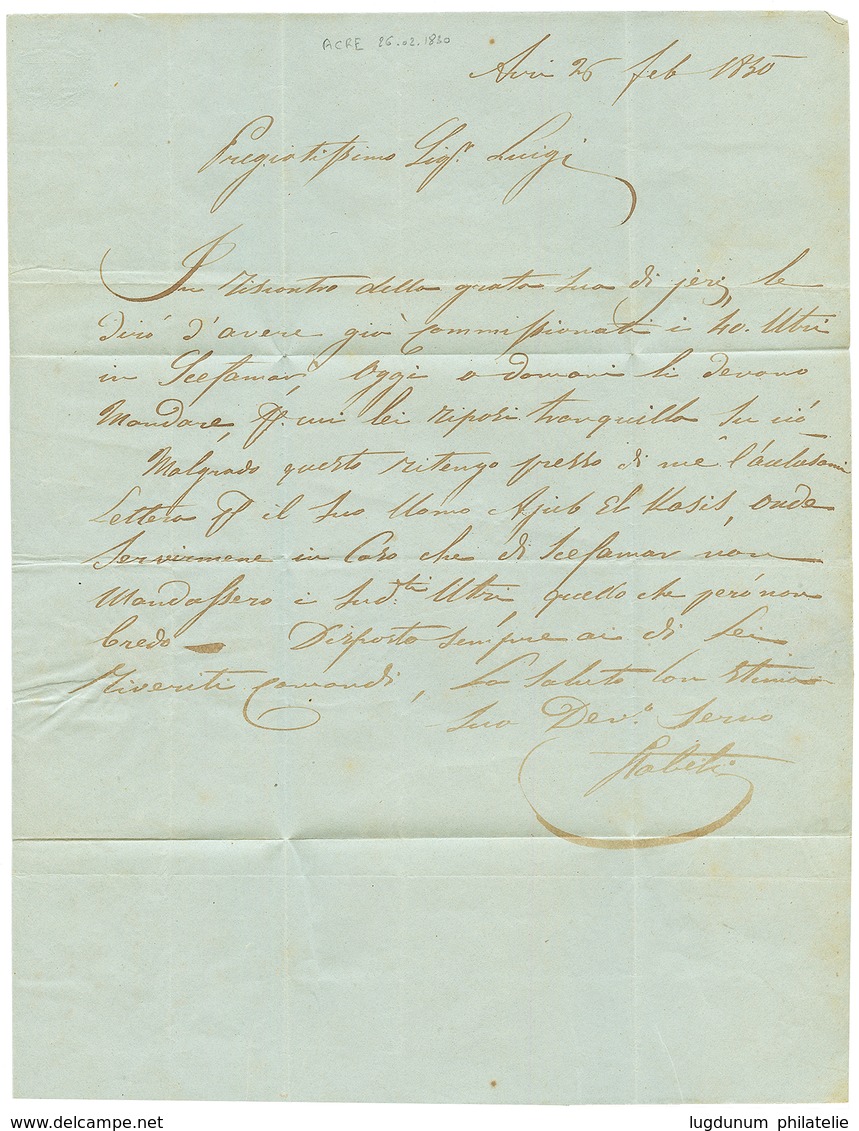 ACRE 26.02.1850
Acri 26 feb 1850
Pregiatissimo Sigr. Luigi
In riscontro della grata sua di jeri, le
dirò d'avere già commissionati i 40. Utri
in Scefamar, oggi o domani li devono
Mandare, pr. cui lei riposi tranquillo su ciò
Malgrado questo ritengo presso di me l'acclusami
Lettera pr il suo Uomo Ajub El Kasis, onde
Servirmene in Caso che di Scefamar non
Mandassero i sudti Utri, quello che però non
Credo — Disposto sempre ai di Lei
Riveriti Comandi, La Saluto Con Stima
Suo Devo. Servo
www.delcampe.net
lugdunum philatelie